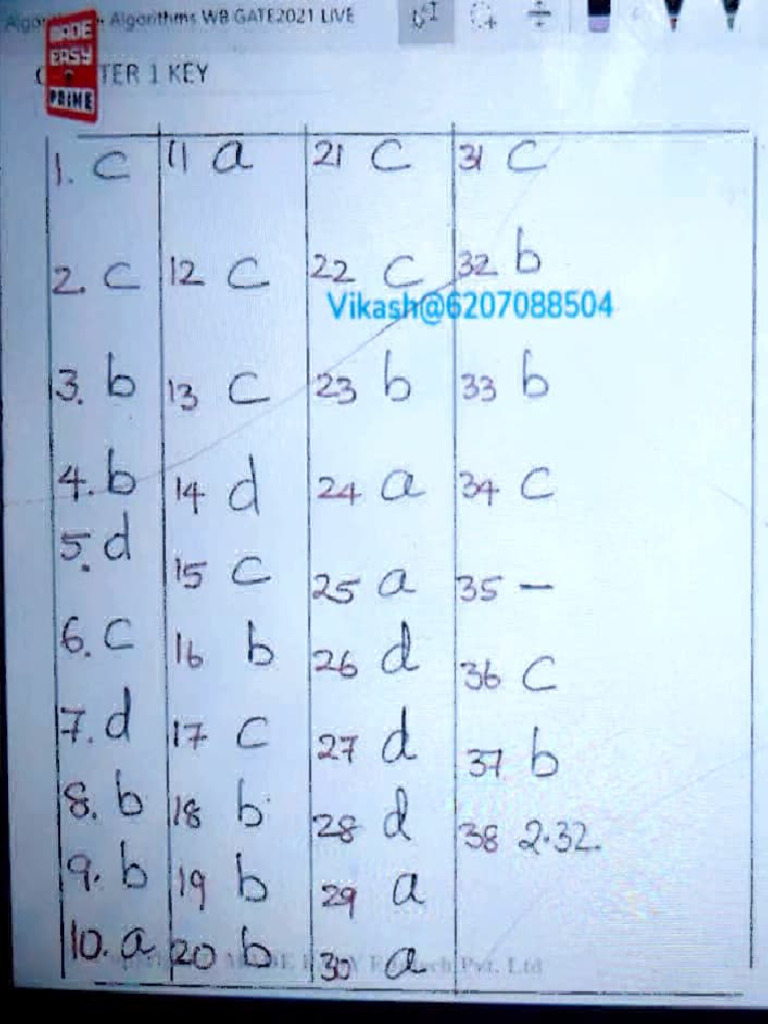 Algorithms WB GATE2021 LIVE
MADE
EASY
PRIME
TER 1 KEY
1. c 11 a 21 c 31 c
2. c 12 c 22 c 32 b
Vikash@6207088504
3. b 13 c 23 b 33 b
4. b 14 d 24 a 34 c
5. d 15 c 25 a 35 –
6. c 16 b 26 d 36 c
7. d 17 c 27 d 37 b
8. b 18 b 28 d 38 2.32.
9. b 19 b 29 a
10. a 20 b 30 a
Pvt. Ltd